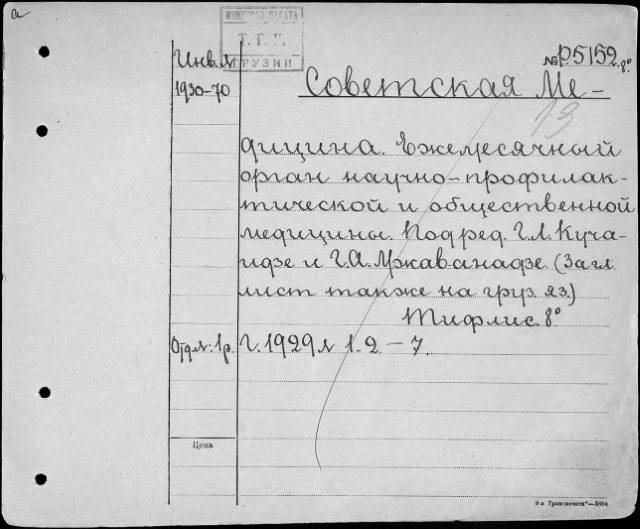 а
КНИЖНАЯ ПАЛАТА
Т. Г. У.
ГРУЗИИ
Инв. №
1930-70
№ P.5152. 8°
Советская Ме-
13
дицина. Ежемесячный
орган научно-профилак-
тической и общественной
медицины. Под ред. Г. Л. Куча-
идзе и Г. А. Мжаванадзе. (Загл.
лист также на груз. яз.)
Тифлис. 8°
Отд. №. 1 р.
Г. 1929 № 1. 2 – 7.
Цена